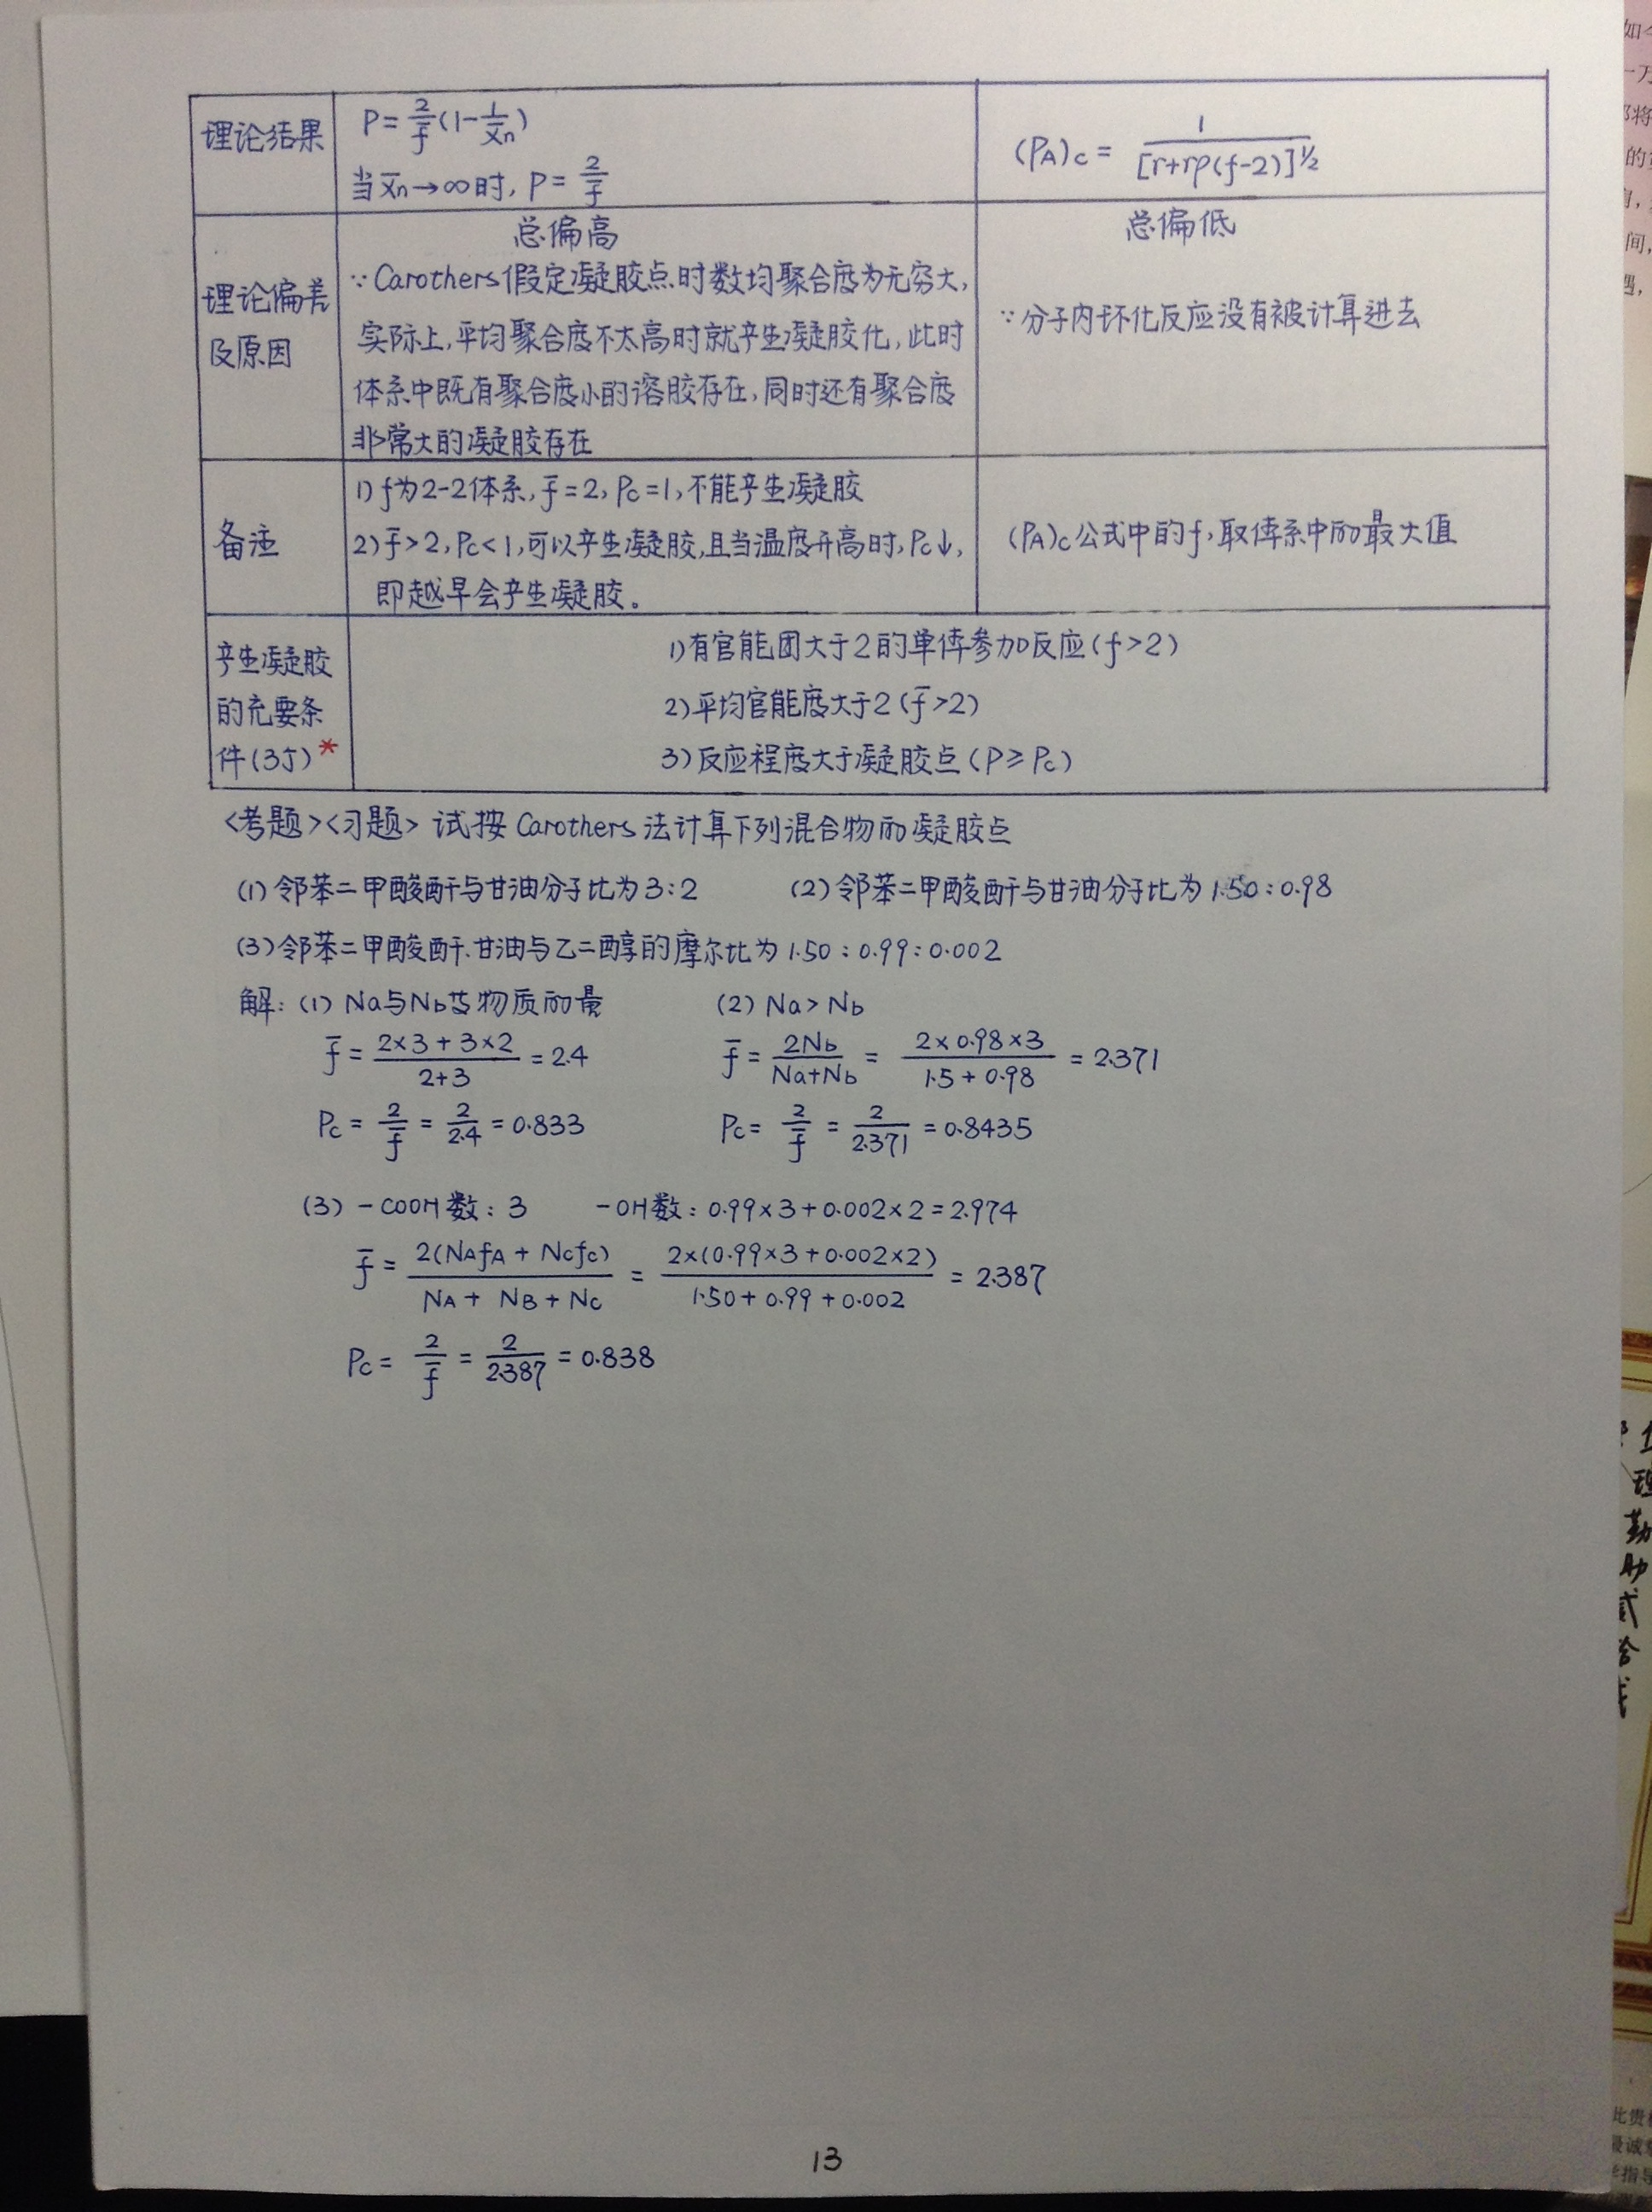 理论结果
P = 2/f̄ (1 - 1/X̄n)
当X̄n→∞时, P = 2/f̄
(PA)c = 1/[r+rρ(f-2)]^1/2
理论偏差
及原因
总偏高
∵ Carothers假定凝胶点时数均聚合度为无穷大,
实际上,平均聚合度不太高时就产生凝胶化,此时
体系中既有聚合度小的溶胶存在,同时还有聚合度
非常大的凝胶存在
总偏低
∵ 分子内环化反应没有被计算进去
备注
1) f为2-2体系, f̄=2, Pc=1, 不能产生凝胶
2) f̄>2, Pc<1, 可以产生凝胶,且当温度升高时, Pc↓,
即越早会产生凝胶。
(PA)c公式中的f,取体系中的最大值
产生凝胶
的充要条
件(3个)*
1)有官能团大于2的单体参加反应(f>2)
2)平均官能度大于2(f̄>2)
3)反应程度大于凝胶点(P≥Pc)
<考题><习题> 试按Carothers法计算下列混合物的凝胶点
(1) 邻苯二甲酸酐与甘油分子比为3:2 (2) 邻苯二甲酸酐与甘油分子比为1.50:0.98
(3) 邻苯二甲酸酐、甘油与乙二醇的摩尔比为1.50:0.99:0.002
解: (1) Na与Nb等物质的量 (2) Na>Nb
f̄ = (2×3+3×2)/(2+3) = 2.4 f̄ = 2Nb/(Na+Nb) = (2×0.98×3)/(1.5+0.98) = 2.371
Pc = 2/f̄ = 2/2.4 = 0.833 Pc = 2/f̄ = 2/2.371 = 0.8435
(3) -COOH数: 3 -OH数: 0.99×3+0.002×2=2.974
f̄ = 2(NAfA+Ncfc)/(NA+NB+Nc) = 2×(0.99×3+0.002×2)/(1.50+0.99+0.002) = 2.387
Pc = 2/f̄ = 2/2.387 = 0.838
13